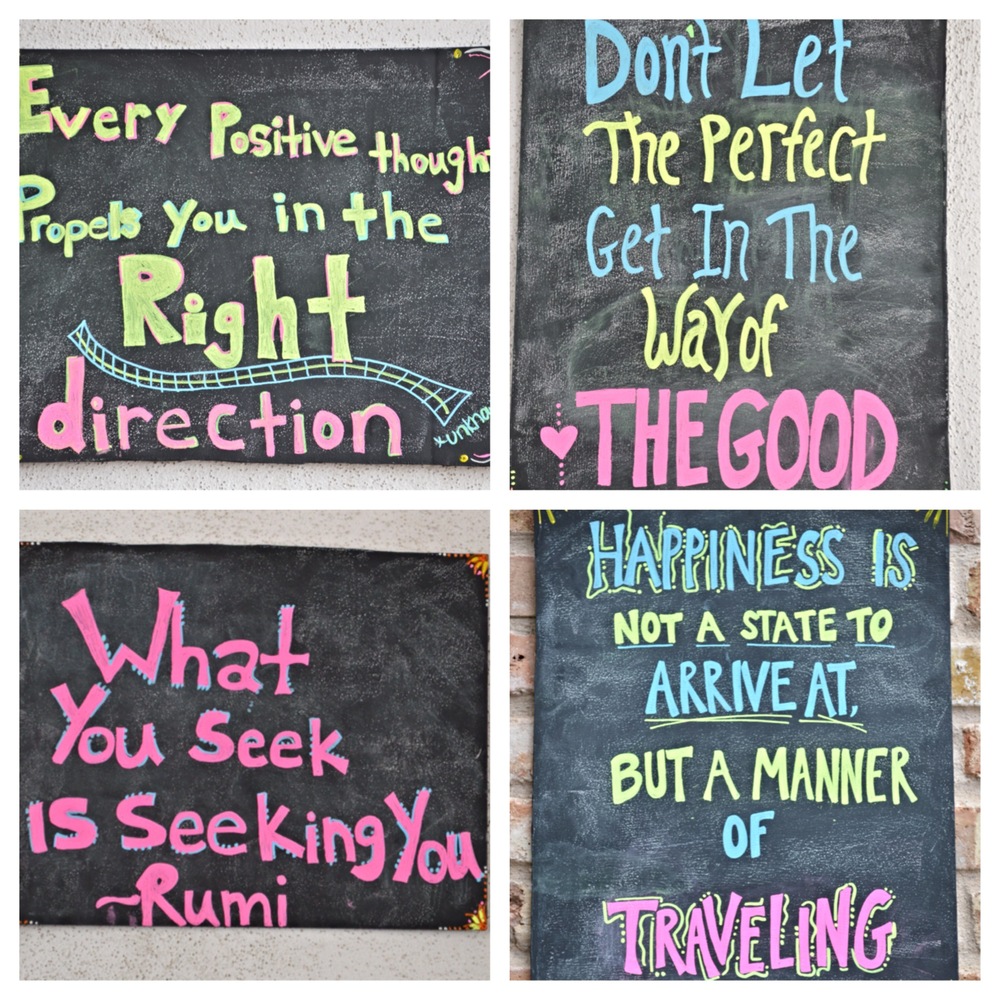 Every Positive thought
Propels you in the
Right
direction
Don't Let
The Perfect
Get In The
Way of
THE GOOD
What
You Seek
is Seeking You
~Rumi
HAPPINESS IS
NOT A STATE TO
ARRIVE AT,
BUT A MANNER
OF
TRAVELING